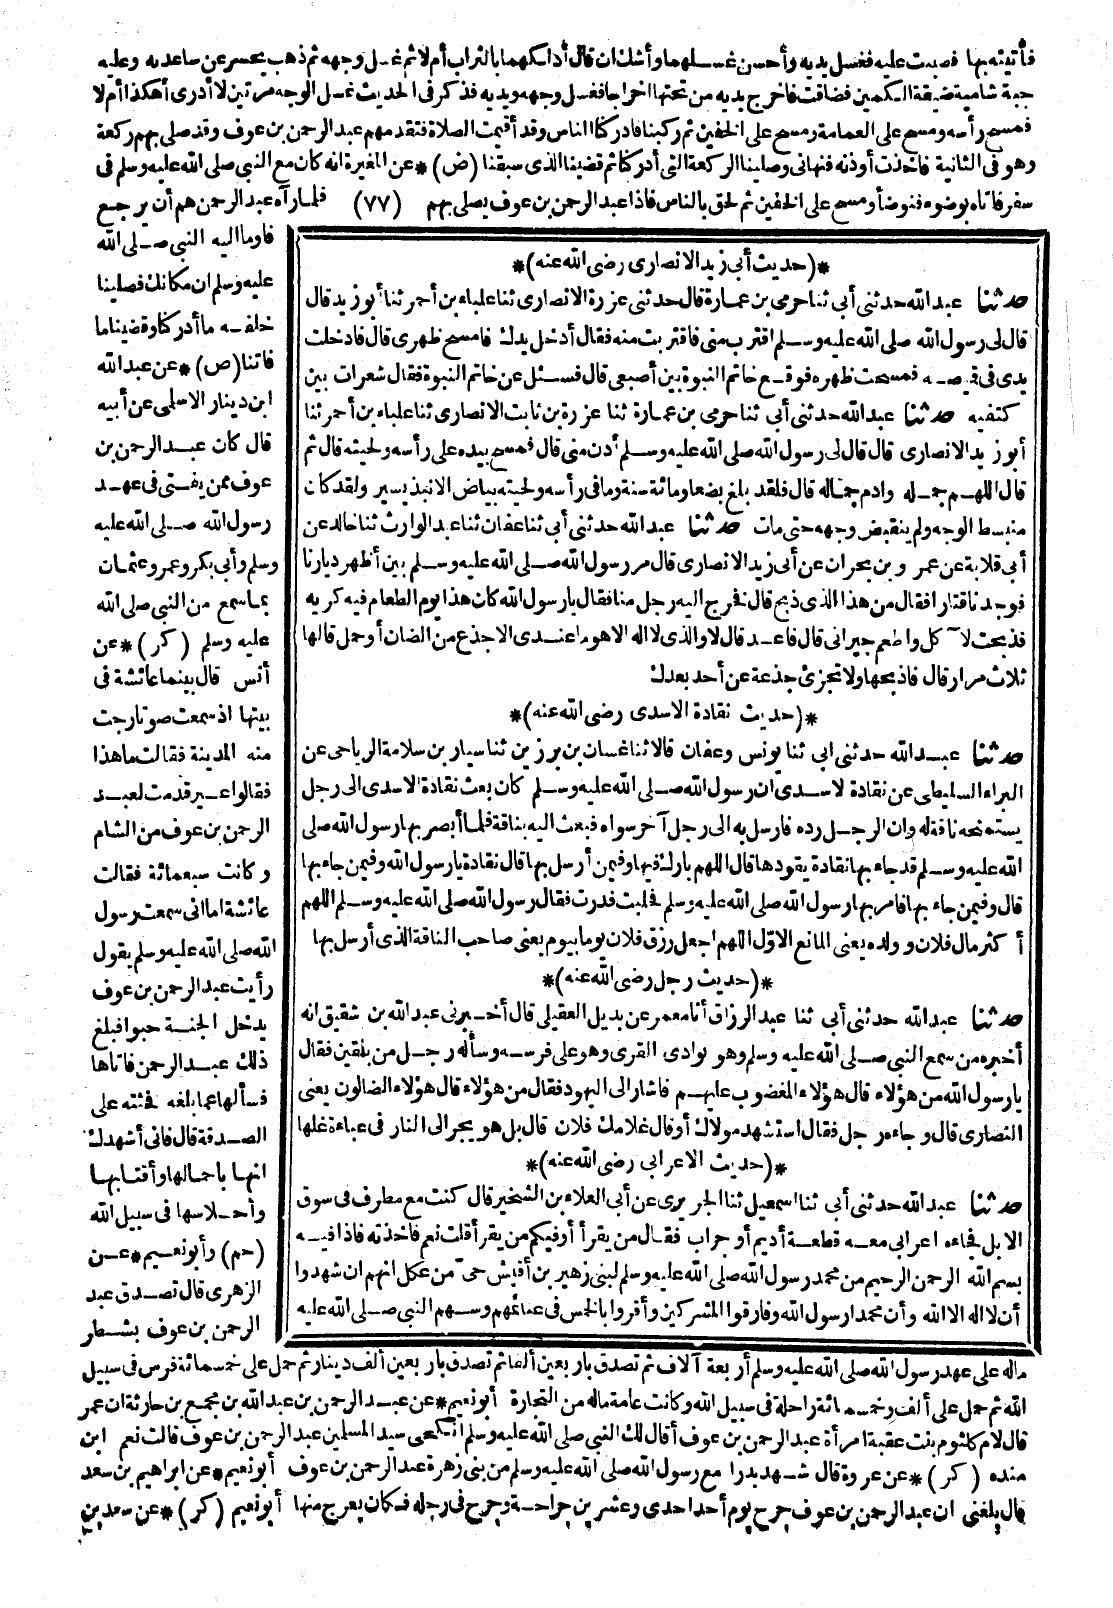 فأتيته بها فصببت عليه فغسل يديه وأحسن غسلهما وأشك ان قال أدلكهما بالتراب أم لا ثم غسل وجهه ثم ذهب يحسر عن ساعديه وعليه
جبة شامية ضيقة الكمين فضاقت فاخرج يديه من تحتها اخراجا فغسل وجهه ويديه فذكر في الحديث غسل الوجه مرتين لا أدرى أهكذا أم لا
فمسح رأسه ومسح على العمامة ومسح على الخفين ثم ركبنا فادركنا الناس وقد أقيمت الصلاة فتقدمهم عبد الرحمن بن عوف وقد صلى بهم ركعة
وهو في الثانية فاخذت أوذنه فنهانى وصلينا الركعة التي أدركنا ثم قضينا الذى سبقنا (ض) * عن المغيرة انه كان مع النبي صلى الله عليه وسلم في
سفر فاتاه بوضوء فتوضأ ومسح على الخفين ثم لحق بالناس فاذا عبد الرحمن بن عوف يصلى بهم (٧٧) فلما رآه عبد الرحمن هم أن يرجع
فاوما اليه النبي صلى الله
عليه وسلم ان مكانك فصلينا
خلفه ما أدركنا وقضينا ما
فاتنا (ص) * عن عبد الله
ابن دينار الاسلمى عن أبيه
قال كان عبد الرحمن بن
عوف ممن يفتى في عهد
رسول الله صلى الله عليه
وسلم وأبي بكر وعمر وعثمان
بما سمع من النبي صلى الله
عليه وسلم (كر) * عن
أنس قال بينما عائشة في
بيتها اذ سمعت صوتا رجت
منه المدينة فقالت ما هذا
فقالوا عير قدمت لعبد
الرحمن بن عوف من الشام
وكانت سبعمائة فقالت
عائشة اما انى سمعت رسول
الله صلى الله عليه وسلم يقول
رأيت عبد الرحمن بن عوف
يدخل الجنة حبوا فبلغ
ذلك عبد الرحمن فاتاها
فسألها عما بلغه فحدثته على
الصدقة قال فانى أشهدك
انها باحمالها وأقتابها
وأحلاسها في سبيل الله
(حم) وأبو نعيم * عن
الزهرى قال تصدق عبد
الرحمن بن عوف بشطر
*(حديث أبي زيد الانصارى رضى الله عنه)*
حدثنا عبد الله حدثنى أبي ثنا حرمى بن عمارة قال حدثنى عزرة الانصارى ثنا علباء بن أحمر ثنا أبو زيد قال
قال لى رسول الله صلى الله عليه وسلم اقترب منى فاقتربت منه فقال أدخل يدك فامسح ظهرى قال فادخلت
يدى في قميصه فمسحت ظهره فوقع خاتم النبوة بين أصبعى قال فسئل عن خاتم النبوة فقال شعرات بين
كتفيه حدثنا عبد الله حدثنى أبي ثنا حرمى بن عمارة ثنا عزرة بن ثابت الانصارى ثنا علباء بن أحمر ثنا
أبو زيد الانصارى قال قال لى رسول الله صلى الله عليه وسلم أدن منى قال فمسح بيده على رأسه ولحيته قال ثم
قال اللهم جمله وادم جماله قال فلقد بلغ بضعا ومائة سنة وما في رأسه ولحيته بياض الا نبذ يسير ولقد كان
منبسط الوجه ولم ينقبض وجهه حتى مات حدثنا عبد الله حدثنى أبي ثنا عفان ثنا عبد الوارث ثنا خالد عن
أبي قلابة عن عمرو بن بجران عن أبي زيد الانصارى قال مر رسول الله صلى الله عليه وسلم بين أظهر ديارنا
فوجد ناقتارا فقال من هذا الذى ذبح قال فخرج اليه رجل منا فقال يا رسول الله كان هذا يوم الطعام فيه كريه
فذبحت لآكل واطعم جيرانى قال فاعد قال لا والذى لا اله الا هو ما عندى الا جذع من الضان أو حمل قالها
ثلاث مرار قال فاذبحها ولا تجزئ جذعة عن أحد بعدك
*(حديث نقادة الاسدى رضى الله عنه)*
حدثنا عبد الله حدثنى ابي ثنا يونس وعفان قالا ثنا غسان بن برزين ثنا سيار بن سلامة الرياحى عن
البراء السليطى عن نقادة لاسدى ان رسول الله صلى الله عليه وسلم كان بعث نقادة الاسدى الى رجل
يستمنحه ناقة له وان الرجل رده فارسل به الى رجل آخر سواه فبعث اليه بناقة فلما أبصر بها رسول الله صلى
الله عليه وسلم قد جاء بها نقادة يقودها قال اللهم بارك فيها وفيمن أرسل بها قال نقادة يا رسول الله وفيمن جاء بها
قال وفيمن جاء بها فامر بها رسول الله صلى الله عليه وسلم فحلبت فدرت فقال رسول الله صلى الله عليه وسلم اللهم
أكثر مال فلان وولده يعنى المانع الاول اللهم اجعل رزق فلان يوما بيوم يعنى صاحب الناقة الذى أرسل بها
*(حديث رجل رضى الله عنه)*
حدثنا عبد الله حدثنى أبي ثنا عبد الرزاق أنا معمر عن بديل العقيلى قال أخبرنى عبد الله بن شقيق انه
أخبره من سمع النبي صلى الله عليه وسلم وهو بوادى القرى وهو على فرسه وسأله رجل من بلقين فقال
يا رسول الله من هؤلاء قال هؤلاء المغضوب عليهم فاشار الى اليهود فقال من هؤلاء قال هؤلاء الضالون يعنى
النصارى قال وجاءه رجل فقال استشهد مولاك أو قال غلامك فلان قال بل هو يجر الى النار في عباءة غلها
*(حديث الاعرابي رضى الله عنه)*
حدثنا عبد الله حدثنى أبي ثنا اسمعيل ثنا الجريرى عن أبي العلاء بن الشخير قال كنت مع مطرف في سوق
الابل فجاءه اعرابي معه قطعة أديم أو جراب فقال من يقرأ أو فيكم من يقرأ قلت نعم فاخذته فاذا فيه
بسم الله الرحمن الرحيم من محمد رسول الله صلى الله عليه وسلم لبنى زهير بن أقيش حى من عكل انهم ان شهدوا
أن لا اله الا الله وأن محمدا رسول الله وفارقوا المشركين وأقروا بالخمس في غنائمهم وسهم النبي صلى الله عليه
ماله على عهد رسول الله صلى الله عليه وسلم أربعة آلاف ثم تصدق باربعين ألفا ثم تصدق باربعين ألف دينار ثم حمل على خمسمائة فرس في سبيل
الله ثم حمل على ألف وخمسمائة راحلة في سبيل الله وكانت عامة ماله من التجارة أبو نعيم * عن عبد الرحمن بن عبد الله بن مجمع بن حارثة ان عمر
قال لام كلثوم بنت عقبة امرأة عبد الرحمن بن عوف أقال لك النبي صلى الله عليه وسلم انكحى سيد المسلمين عبد الرحمن بن عوف قالت نعم ابن
منده (كر) * عن عروة قال شهد بدرا مع رسول الله صلى الله عليه وسلم من بنى زهرة عبد الرحمن بن عوف أبو نعيم * عن ابراهيم بن سعد
قال بلغنى ان عبد الرحمن بن عوف جرح يوم أحد احدى وعشرين جراحة وجرح في رجله فكان يعرج منها أبو نعيم (كر) * عن سعد بن